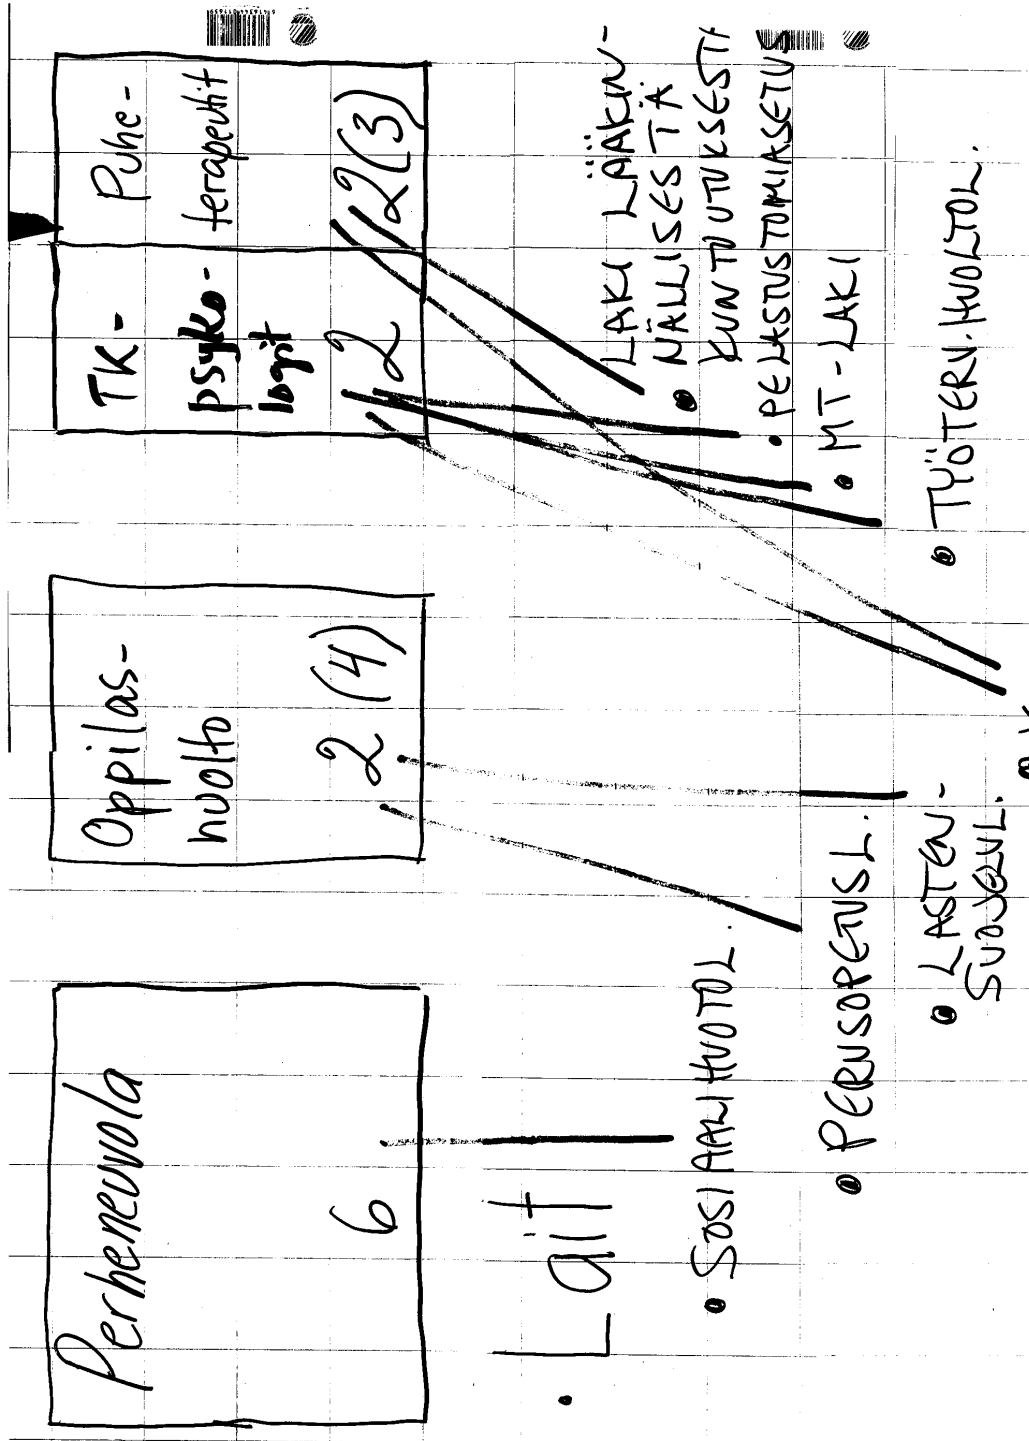 Perheneuvola
6
Oppilas-
huolto
2 (4)
TK-
psyko-
logit
2
Puhe-
terapeutit
2(3)
• Lait
• SOSIAALIHUOTOL.
• PERUSOPETUSL.
• LASTEN-
SUOJELUL.
• LAKI LÄÄKIN-
NÄLLISESTÄ
KUNTOUTUKSESTA
• PELASTUSTOIMIASETUS
• MT-LAKI
• TYÖTERV.HUOLTOL.